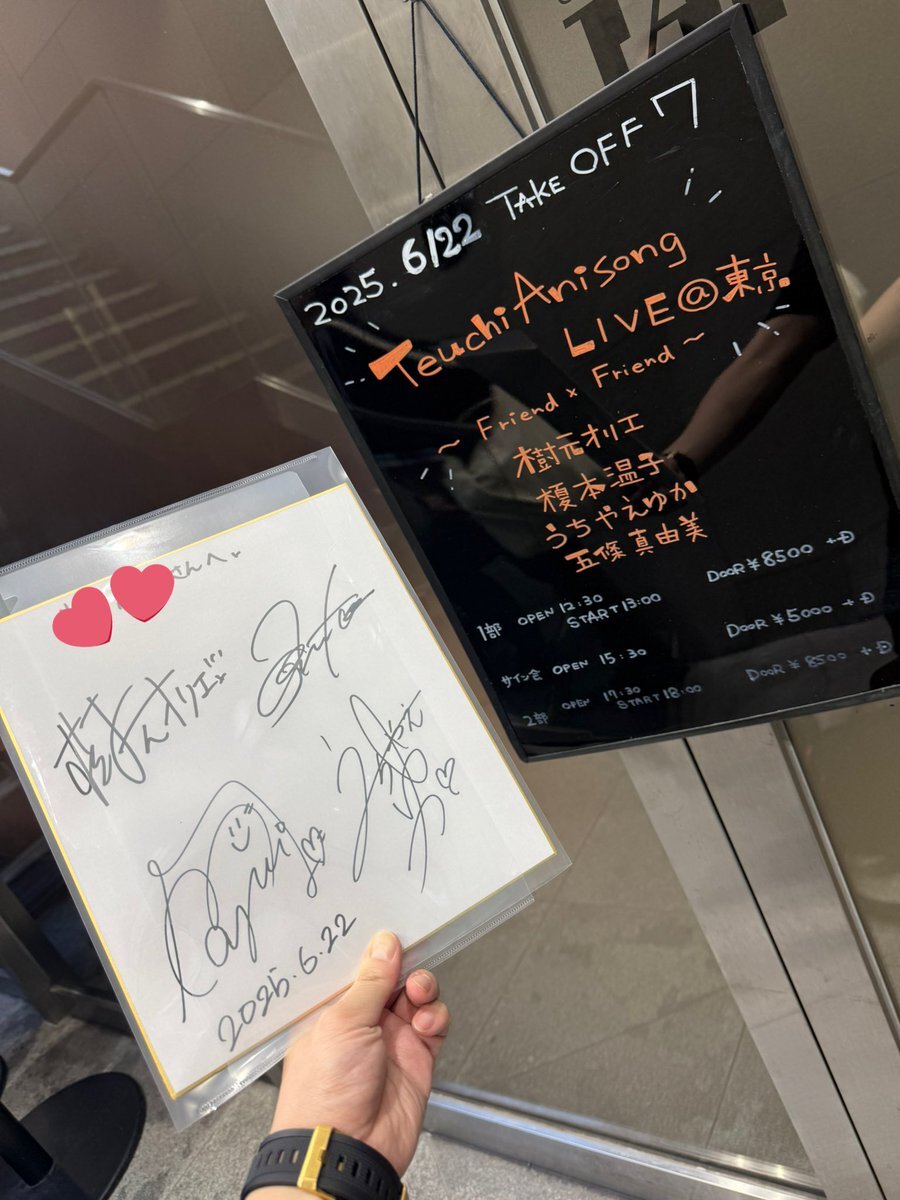 2025.6/22 TAKE OFF 7
Teuchi Anisong
LIVE@東京
～ Friend × Friend ～
樹元オリエ
榎本温子
うちやえゆか
五條真由美
1部 OPEN 12:30 DOOR ¥8500 +D
START 13:00
サイン会 OPEN 15:30 DOOR ¥5000 +D
2部 OPEN 17:30 DOOR ¥8500 +D
START 18:00
さんへ
オリエ
2025.6.22